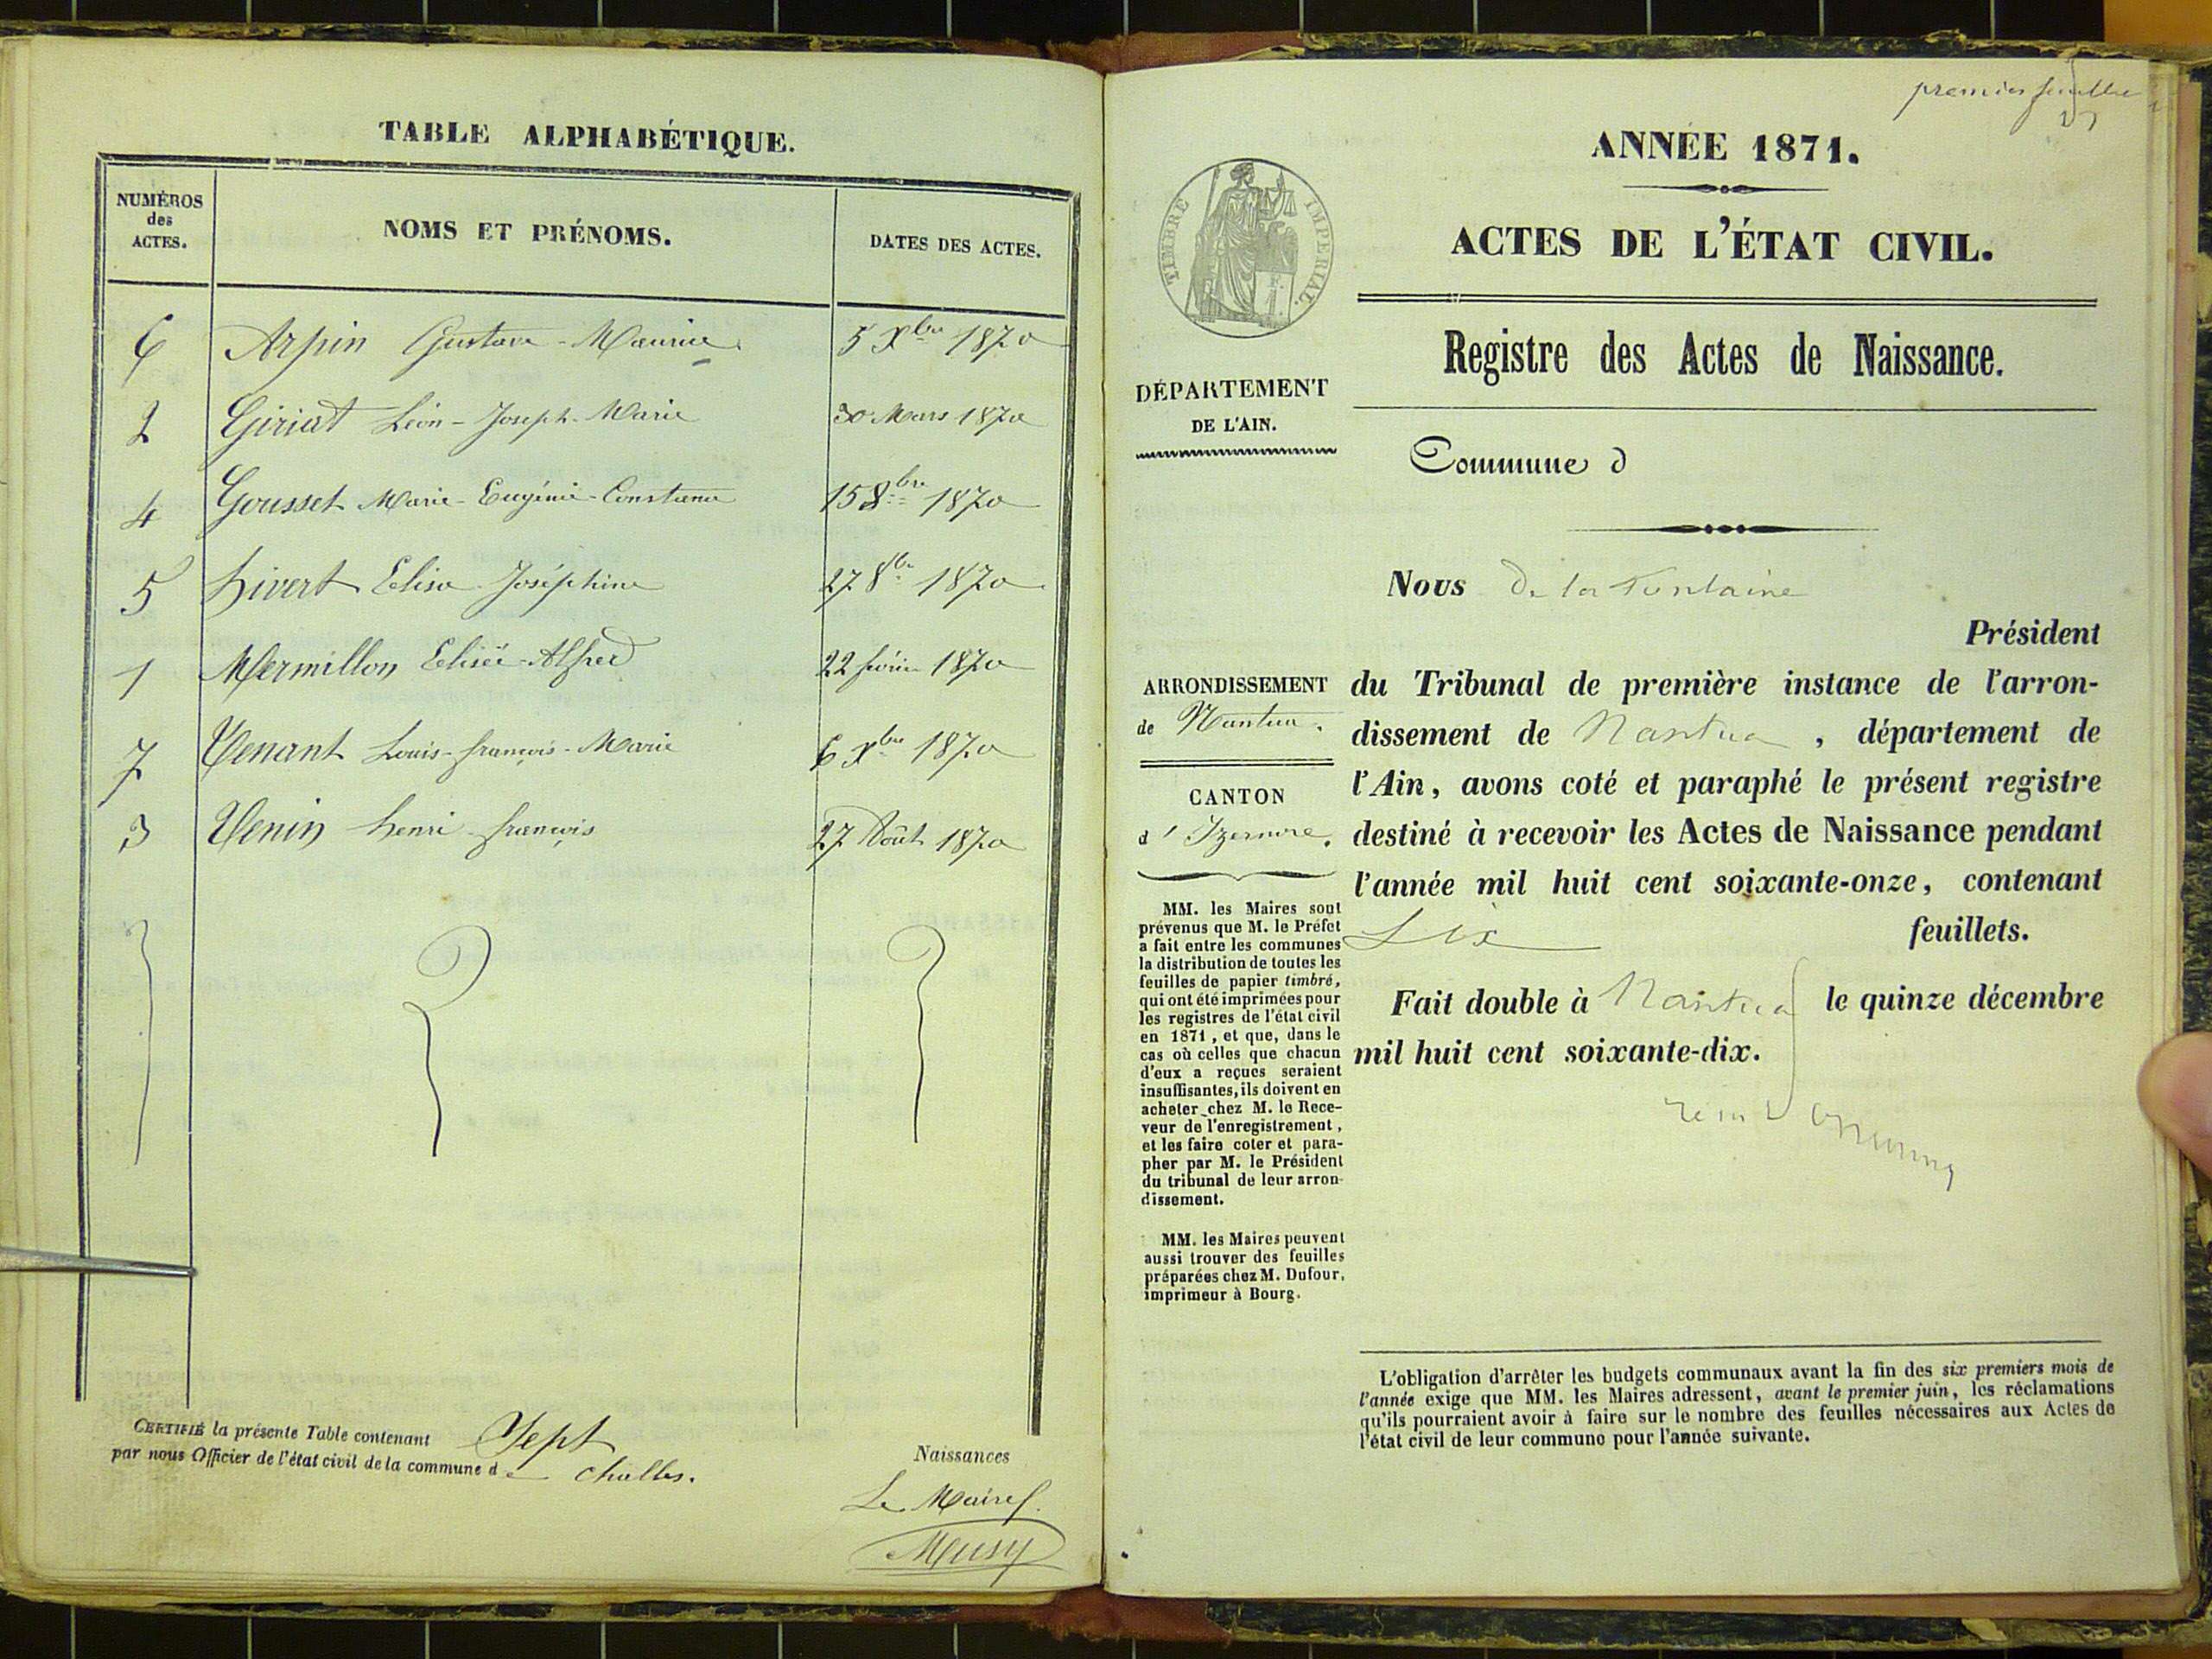 TABLE ALPHABÉTIQUE.
NUMÉROS des ACTES.
NOMS ET PRÉNOMS.
DATES DES ACTES.
6 Arpin Gustave-Maurice 5 Xbre 1870
2 Giriat Léon-Joseph-Marie 30 Mars 1870
4 Gousset Marie-Eugénie-Constance 15 8bre 1870
5 hivert Elisa Joséphine 27 8bre 1870
1 Mermillon Elisée-Alfred 22 février 1870
7 Venant Louis-françois-Marie 6 Xbre 1870
3 Venin henri-françois 27 Août 1870
CERTIFIÉ la présente Table contenant Sept Naissances
par nous Officier de l'état civil de la commune de challes.
Le Maire
Musy
premier feuillet
ANNÉE 1871.
ACTES DE L'ÉTAT CIVIL.
TIMBRE IMPERIAL.
Registre des Actes de Naissance.
DÉPARTEMENT
DE L'AIN.
Commune d
Nous De la Fontaine
Président
du Tribunal de première instance de l'arron-
dissement de Nantua, département de
l'Ain, avons coté et paraphé le présent registre
destiné à recevoir les Actes de Naissance pendant
l'année mil huit cent soixante-onze, contenant
Six feuillets.
Fait double à Nantua le quinze décembre
mil huit cent soixante-dix.
ARRONDISSEMENT
de Nantua.
CANTON
d'Izernore.
MM. les Maires sont
prévenus que M. le Préfet
a fait entre les communes
la distribution de toutes les
feuilles de papier timbré,
qui ont été imprimées pour
les registres de l'état civil
en 1871, et que, dans le
cas où celles que chacun
d'eux a reçues seraient
insuffisantes, ils doivent en
acheter chez M. le Rece-
veur de l'enregistrement,
et les faire coter et para-
pher par M. le Président
du tribunal de leur arron-
dissement.
MM. les Maires peuvent
aussi trouver des feuilles
préparées chez M. Dufour,
imprimeur à Bourg.
L'obligation d'arrêter les budgets communaux avant la fin des six premiers mois de
l'année exige que MM. les Maires adressent, avant le premier juin, les réclamations
qu'ils pourraient avoir à faire sur le nombre des feuilles nécessaires aux Actes de
l'état civil de leur commune pour l'année suivante.